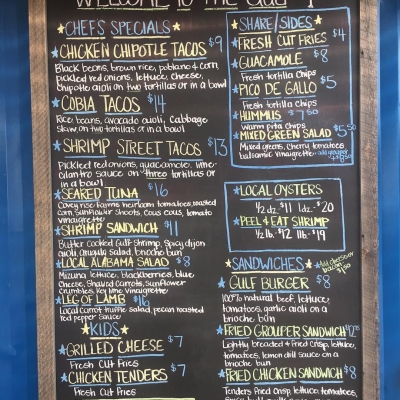 WELCOME TO THE
CHEFS SPECIALS
CHICKEN CHIPOTLE TACOS $9
Black beans, brown rice, poblano & corn,
pickled red onions, lettuce, cheese,
chipotle aioli on two tortillas or in a bowl
COBIA TACOS $14
Rice, beans, avocado aioli, cabbage
slaw, on two tortillas or in a bowl
SHRIMP STREET TACOS $13
Pickled red onions, guacamole, lime-
cilantro sauce on three tortillas or
in a bowl
SEARED TUNA $16
Covey rise Farms heirloom tomatoes, roasted
corn, sunflower shoots, cous cous, tomato
vinaigrette
SHRIMP SANDWICH $11
Butter cooked Gulf Shrimp, spicy dijon
aioli, arugula salad, brioche bun
LOCAL ALABAMA SALAD $8
Mizuna lettuce, blackberries, blue
cheese, shaved carrots, sunflower
crumbles, key lime vinaigrette
LEG OF LAMB $16
Local carrot truffle salad, pecan roasted
red pepper sauce
KIDS
GRILLED CHEESE $7
Fresh Cut Fries
CHICKEN TENDERS $7
Fresh Cut Fries
SHARE/SIDES
FRESH CUT FRIES $4
GUACAMOLE $8
Fresh tortilla Chips
PICO DE GALLO $5
Fresh tortilla Chips
HUMMUS $7.50
Warm pita Chips
MIXED GREEN SALAD $5.50
Mixed greens, Cherry tomatoes
balsamic vinaigrette
LOCAL OYSTERS
1/2 dz. $11 1dz. $20
PEEL & EAT SHRIMP
1/2 lb. $12 1lb. $19
SANDWICHES
GULF BURGER $8
100% natural beef, lettuce,
tomatoes, garlic aioli on a
brioche bun
FRIED GROUPER SANDWICH
Lightly breaded & fried crisp, lettuce,
tomatoes, lemon dill sauce on a
brioche bun
FRIED CHICKEN SANDWICH $8
Tenders fried crisp, lettuce, tomatoes,